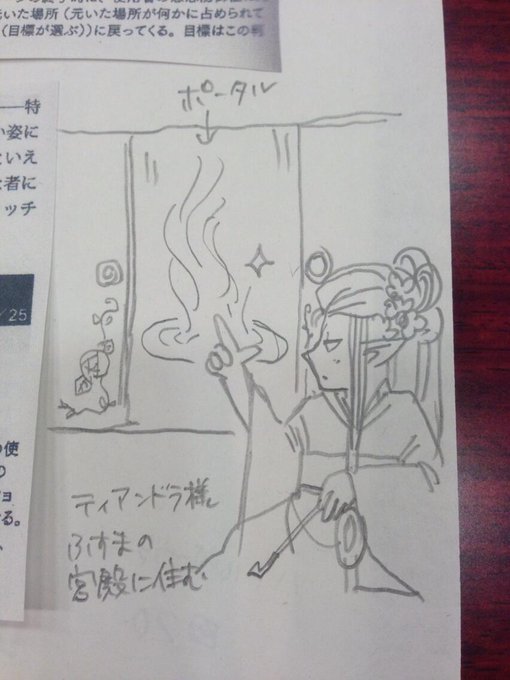 いた場所（元いた場所が何かに占められて
（目標が選ぶ））に戻ってくる。目標はこの判
――特
い姿に
といえ
者に
ッチ
/25
の使
の
ョ
る。
ポータル
ティアンドラ様
ふすまの
宮殿に住む